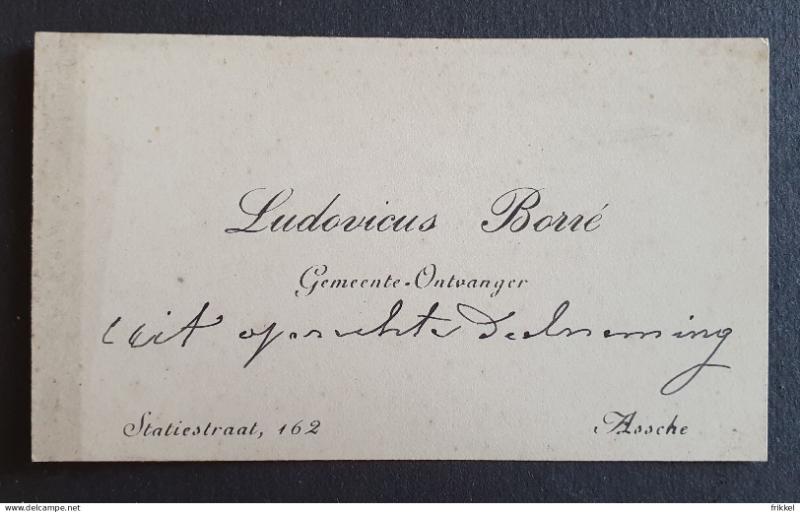 Ludovicus Borré
Gemeente-Ontvanger
uit oprechte Deelneming
Statiestraat, 162 Assche
www.delcampe.net frikkel